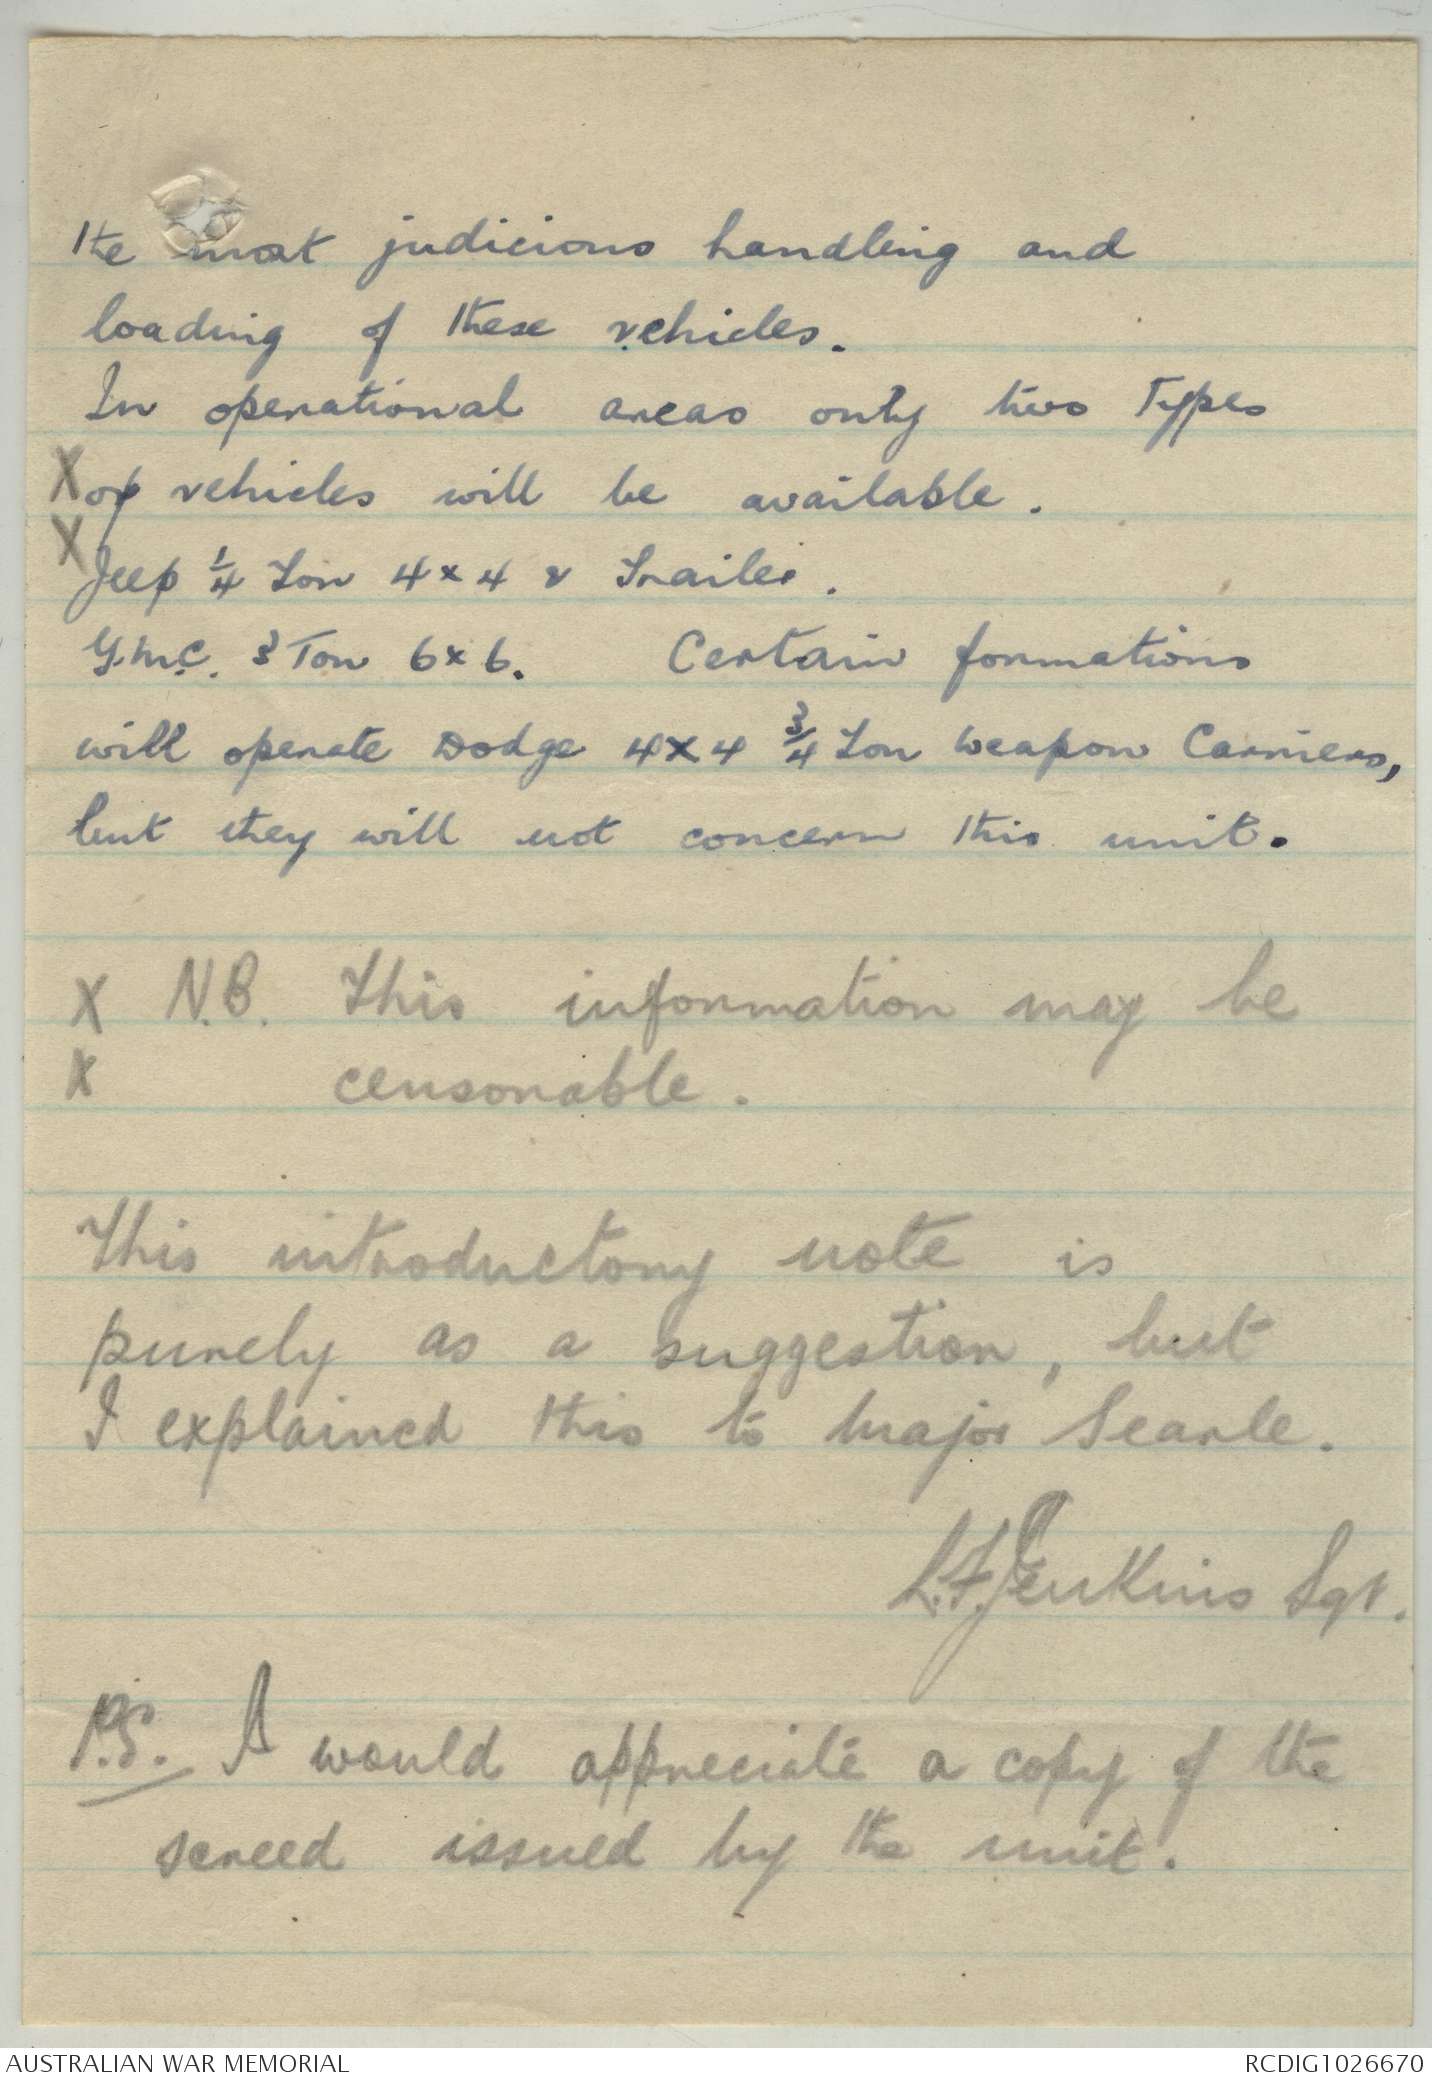 the most judicious handling and
loading of these vehicles.
In operational areas only two Types
X of vehicles will be available.
X Jeep 1/4 Ton 4x4 & Trailer.
G.M.C. 3 Ton 6x6. Certain formations
will operate Dodge 4x4 3/4 Ton Weapon Carriers,
but they will not concern this unit.
X N.B. This information may be
X censorable.
This introductory note is
purely as a suggestion, but
I explained this to Major Searle.
L.F. Jenkins Sgt.
P.S. I would appreciate a copy of the
screed issued by the unit.
AUSTRALIAN WAR MEMORIAL
RCDIG1026670